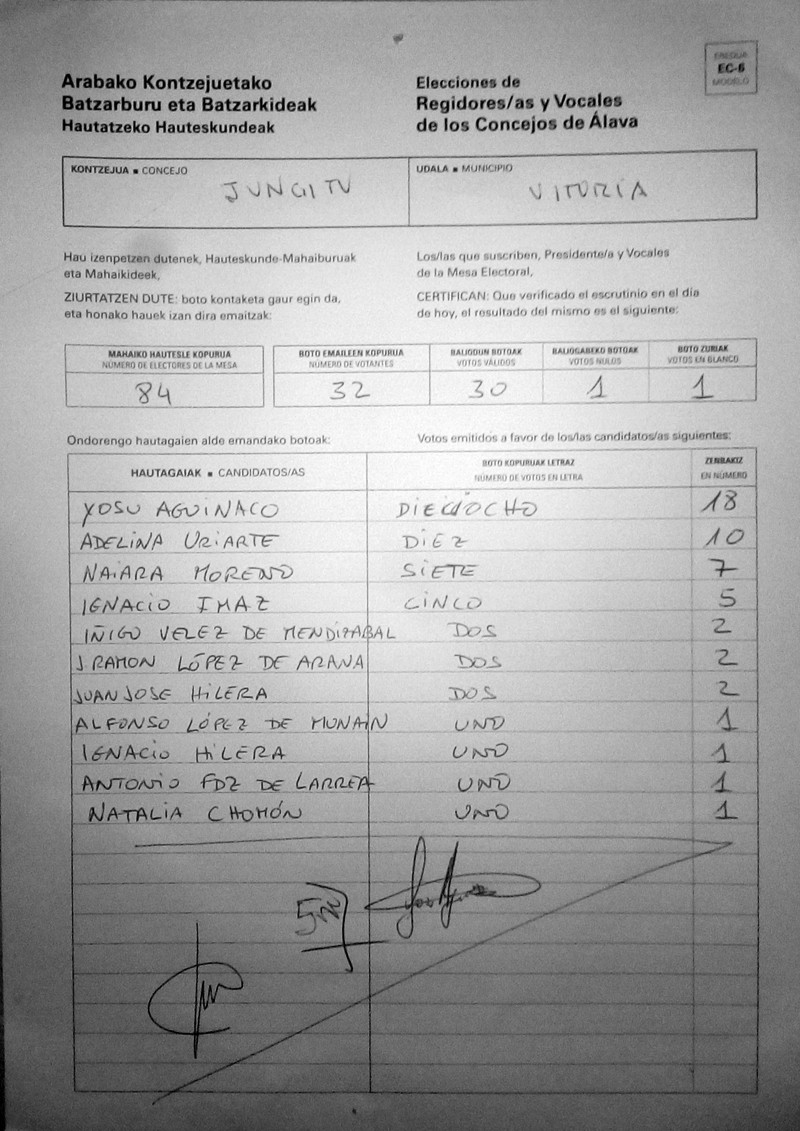 EREDUA
EC-6
MODELO
Arabako Kontzejuetako
Batzarburu eta Batzarkideak
Hautatzeko Hauteskundeak
Elecciones de
Regidores/as y Vocales
de los Concejos de Álava
KONTZEJUA ■ CONCEJO
JUNGITU
UDALA ■ MUNICIPIO
VITORIA
Hau izenpetzen dutenek, Hauteskunde-Mahaiburuak
eta Mahaikideek,
Los/las que suscriben, Presidente/a y Vocales
de la Mesa Electoral,
ZIURTATZEN DUTE: boto kontaketa gaur egin da,
eta honako hauek izan dira emaitzak:
CERTIFICAN: Que verificado el escrutinio en el día
de hoy, el resultado del mismo es el siguiente:
MAHAIKO HAUTESLE KOPURUA
NÚMERO DE ELECTORES DE LA MESA
84
BOTO EMAILEEN KOPURUA
NÚMERO DE VOTANTES
32
BALIODUN BOTOAK
VOTOS VÁLIDOS
30
BALIOGABEKO BOTOAK
VOTOS NULOS
1
BOTO ZURIAK
VOTOS EN BLANCO
1
Ondorengo hautagaien alde emandako botoak:
Votos emitidos a favor de los/las candidatos/as siguientes:
HAUTAGAIAK ■ CANDIDATOS/AS
BOTO KOPURUAK LETRAZ
NÚMERO DE VOTOS EN LETRA
ZENBAKIZ
EN NÚMERO
YOSU AGUINACO DIECIOCHO 18
ADELINA URIARTE DIEZ 10
NAIARA MORENO SIETE 7
IGNACIO IMAZ CINCO 5
IÑIGO VELEZ DE MENDIZABAL DOS 2
J RAMON LÓPEZ DE ARANA DOS 2
JUAN JOSE HILERA DOS 2
ALFONSO LÓPEZ DE MUNAIN UNO 1
IGNACIO HILERA UNO 1
ANTONIO FDZ DE LARREA UNO 1
NATALIA CHOMÓN UNO 1